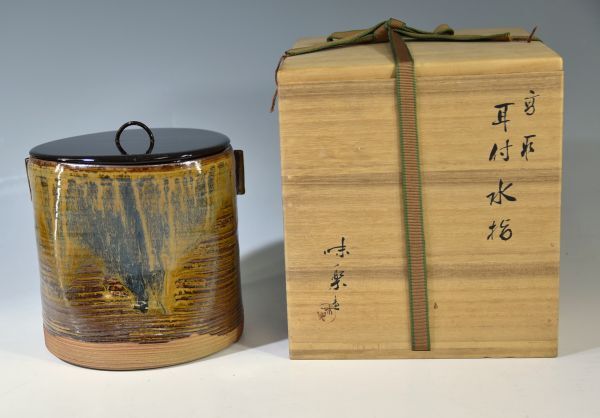 高取
耳付水指
味楽造